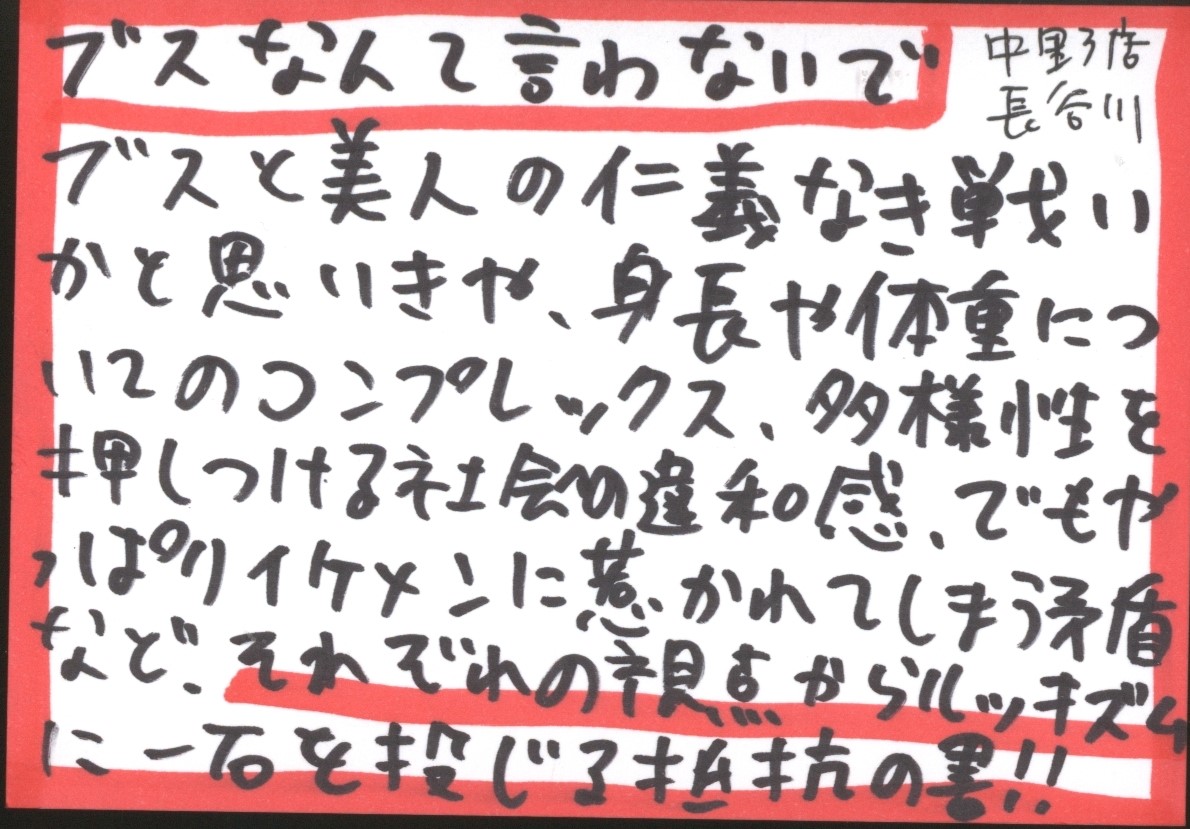 ブスなんて言わないで
中野店
長谷川
ブスと美人の仁義なき戦い
かと思いきや、身長や体重につ
いてのコンプレックス、多様性を
押しつける社会の違和感、でもや
っぱりイケメンに惹かれてしまう矛盾
など、それぞれの視点からルッキズム
に一石を投じる抵抗の書!!